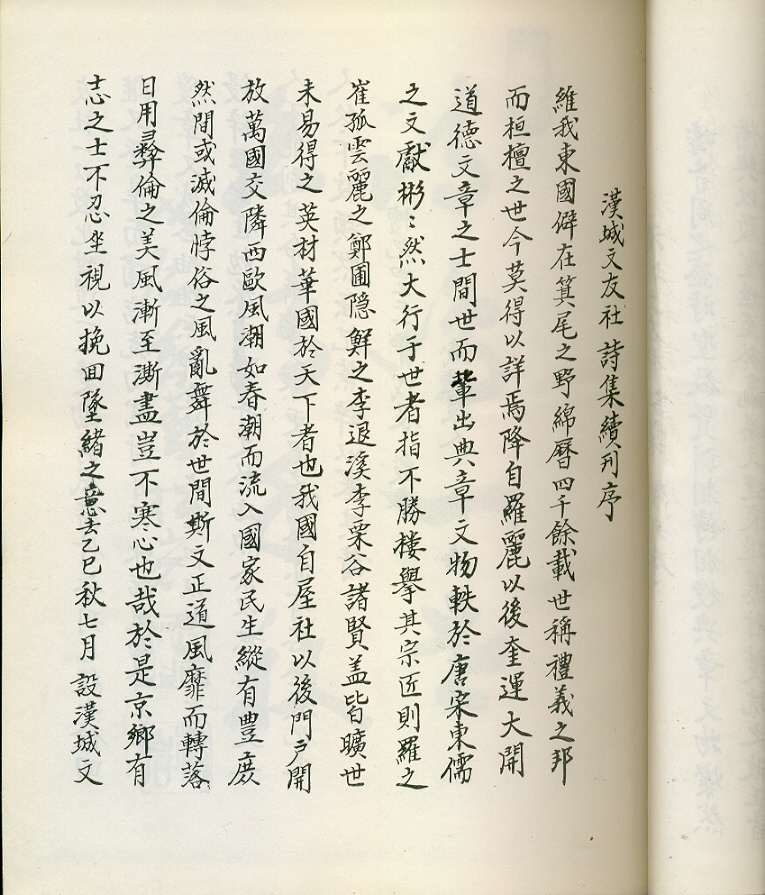 漢城文友社 詩集續刊序
維我東國僻在箕尾之野綿曆四千餘載世稱禮義之邦
而桓檀之世今莫得以詳焉降自羅麗以後奎運大開
道德文章之士間世而輩出典章文物軼於唐宋東儒
之文獻彬〻然大行于世者指不勝樓擧其宗匠則羅之
崔孤雲麗之鄭圃隐鮮之李退溪李栗谷諸賢盖皆曠世
未易得之英材華國於天下者也我國自屋社以後門戶開
放萬國交隣西歐風潮如春潮而流入國家民生縱有豊庶
然間或滅倫悖俗之風亂舞於世間斯文正道風靡而轉落
日用彛倫之美風漸至澌盡豈不寒心也哉於是京鄉有
志之士不忍坐視以挽回墜緖之意去乙巳秋七月設漢城文